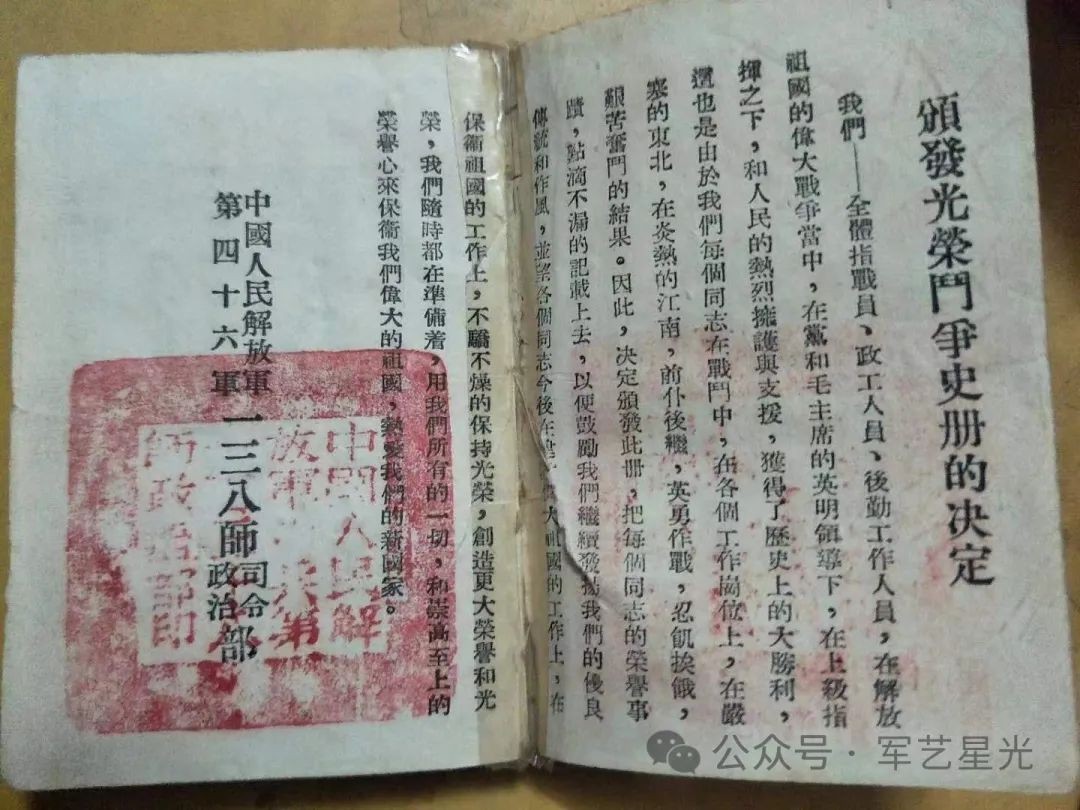 頒發光榮鬥爭史册的决定
我們——全體指戰員、政工人員、後勤工作人員，在解放
祖國的偉大戰爭當中，在黨和毛主席的英明領導下，在上級指
揮之下，和人民的熱烈擁護與支援，獲得了歷史上的大勝利，
這也是由於我們每個同志在戰鬥中，在各個工作崗位上，在嚴
寒的東北，在炎熱的江南，前仆後繼，英勇作戰，忍飢挨餓，
艱苦奮鬥的結果。因此，决定頒發此册，把每個同志的榮譽事
蹟，點滴不漏的記載上去，以便鼓勵我們繼續發揚我們的優良
傳統和作風，並望各個同志今後在建 大祖國的工作上，在
保衛祖國的工作上，不驕不燥的保持光榮，創造更大榮譽和光
榮，我們隨時都在準備着，用我們所有的一切，和崇高至上的
榮譽心來保衛我們偉大的祖國，熱愛我們的新國家。
中國人民解放軍
第四十六軍
一三八師司令
政治部
中國人民解
放軍 第
師政治部印
公众号·军艺星光